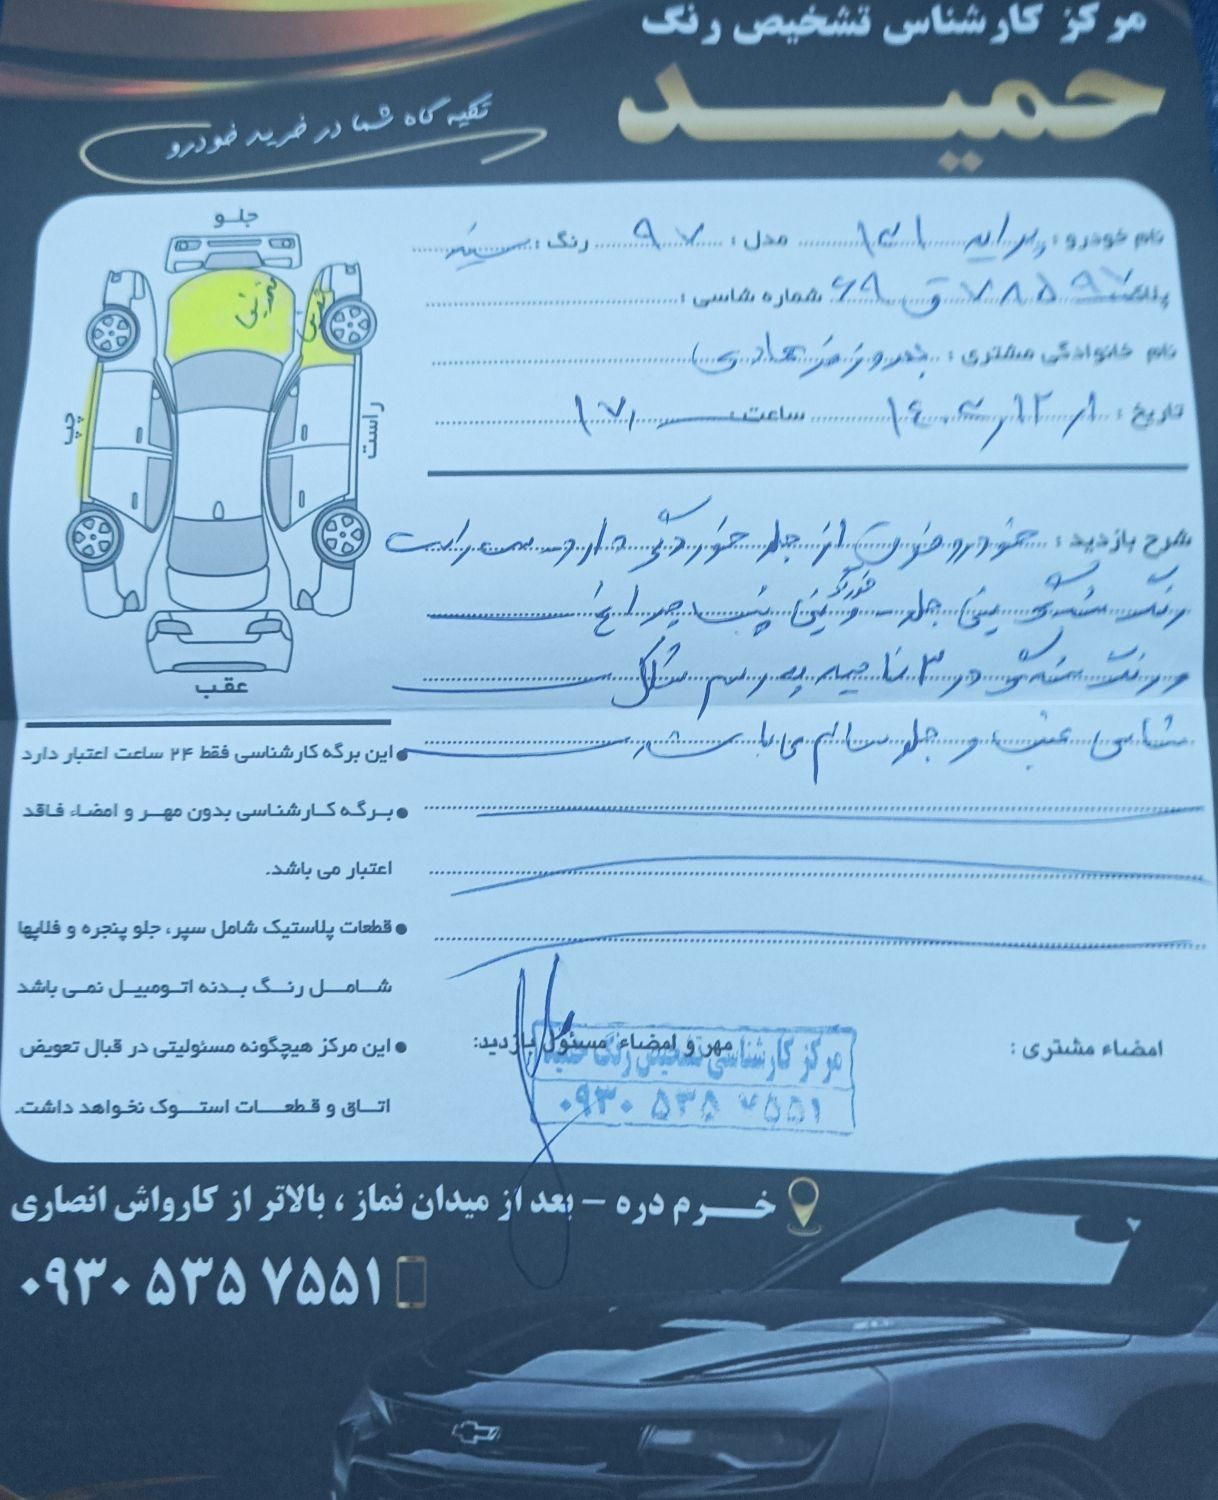 مرکز کارشناسی تشخیص رنگ
حمید
تکیه گاه شما در خرید خودرو
جلو
نام خودرو: پراید ۱۳۱ مدل: ۹۷ رنگ: سفید
پلاک: ۷۸۵ ق ۶۹ شماره شاسی:
نام خانوادگی مشتری:
تاریخ: ۱۴۰۳/۱۲/۱ ساعت: ۱۷
چپ
راست
تعویض
تعویض
شرح بازدید: خودرو فوق از جلو خوردگی دارد سمت راست
رنگ شدگی سینی جلو و سینی پشت چراغ خوردگی
و رنگ شدگی در ۳ ناحیه به رسم شکل
شاسی عقب و جلو سالم می باشد
عقب
• این برگه کارشناسی فقط ۲۴ ساعت اعتبار دارد
• برگه کارشناسی بدون مهر و امضاء فاقد
اعتبار می باشد.
• قطعات پلاستیک شامل سپر، جلو پنجره و فلاپها
شامل رنگ بدنه اتومبیل نمی باشد
• این مرکز هیچگونه مسئولیتی در قبال تعویض
اتاق و قطعات استوک نخواهد داشت.
امضاء مشتری:
مهر و امضاء مسئول بازدید:
مرکز کارشناسی تشخیص رنگ حمید
۰۹۳۰ ۵۳۵ ۷۵۵۱
خرم دره - بعد از میدان نماز، بالاتر از کارواش انصاری
۰۹۳۰ ۵۳۵ ۷۵۵۱